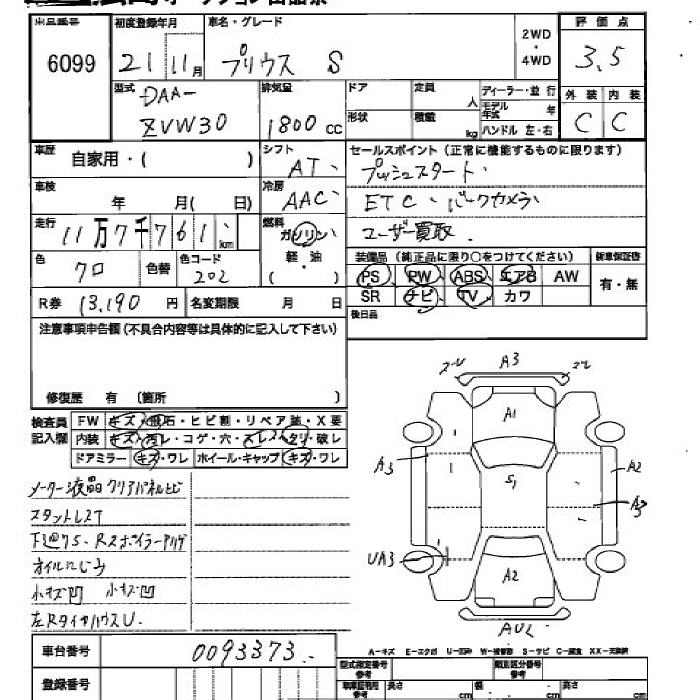 出品番号 初度登録年月 車名・グレード 2WD・4WD 評価点
6099 21 11月 プリウス S 3.5
型式 DAA-ZVW30 排気量 1800cc ドア 定員 人 ディーラー・並行 外装 内装
形状 積載 kg モデル年式 年 ハンドル 左・右 C C
車歴 自家用・( ) シフト AT、 セールスポイント (正常に機能するものに限ります)
プッシュスタート、
車検 年 月( 日) 冷房 AAC、 ETC、バックカメラ、
走行 11万7千761、km 燃料 ガソリン・軽・油 ( ) ユーザー買取、
色 クロ 色替 色コード 202 装備品 (純正品に限り○をつけてください) 新車保証書
PS PW ABS エアB AW 有・無
R券 13,190円 名変期限 月 日 SR ナビ TV カワ
注意事項申告欄(不具合内容等は具体的に記入して下さい) 後日品
修復歴 有 (箇所 )
検査員記入欄 FW キズ・飛石・ヒビ割・リペア跡・X要
内装 キズ・汚レ・コゲ・穴・スレ・ヘタリ・破レ
ドアミラー キズ・ワレ ホイール・キャップ キズ・ワレ
A3
A1
A3 S1 A2
A3
UA3 A2
メーター液晶クリアパネルヒビ
スタットレスT
オイルにじみ
小キズ凹 小キズ凹
左RタイヤハウスU.
車台番号 0093373.-
A-キズ E-エクボ U-凹み W-補修跡 S-サビ C-腐食 XX-交換済
登録番号 型式指定番号 類別区分番号
長さ cm 幅 cm 高さ cm